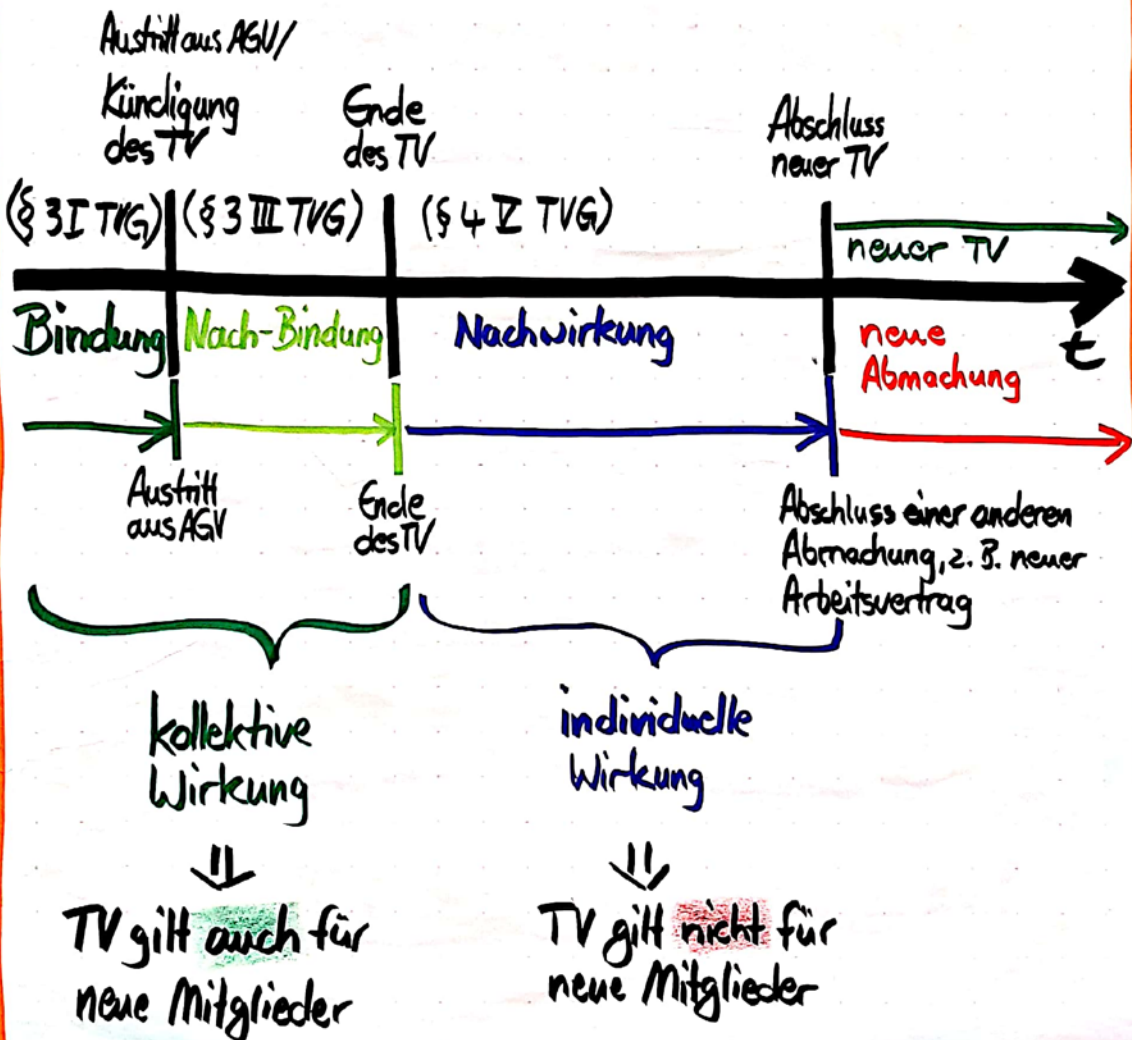 Austritt aus AGV/
Kündigung
des TV
Ende
des TV
Abschluss
neuer TV
(§ 3 I TVG)
(§ 3 III TVG)
(§ 4 V TVG)
neuer TV
Bindung
Nach-Bindung
Nachwirkung
neue
Abmachung
t
Austritt
aus AGV
Ende
des TV
Abschluss einer anderen
Abmachung, z. B. neuer
Arbeitsvertrag
kollektive
Wirkung
individuelle
Wirkung
TV gilt auch für
neue Mitglieder
TV gilt nicht für
neue Mitglieder